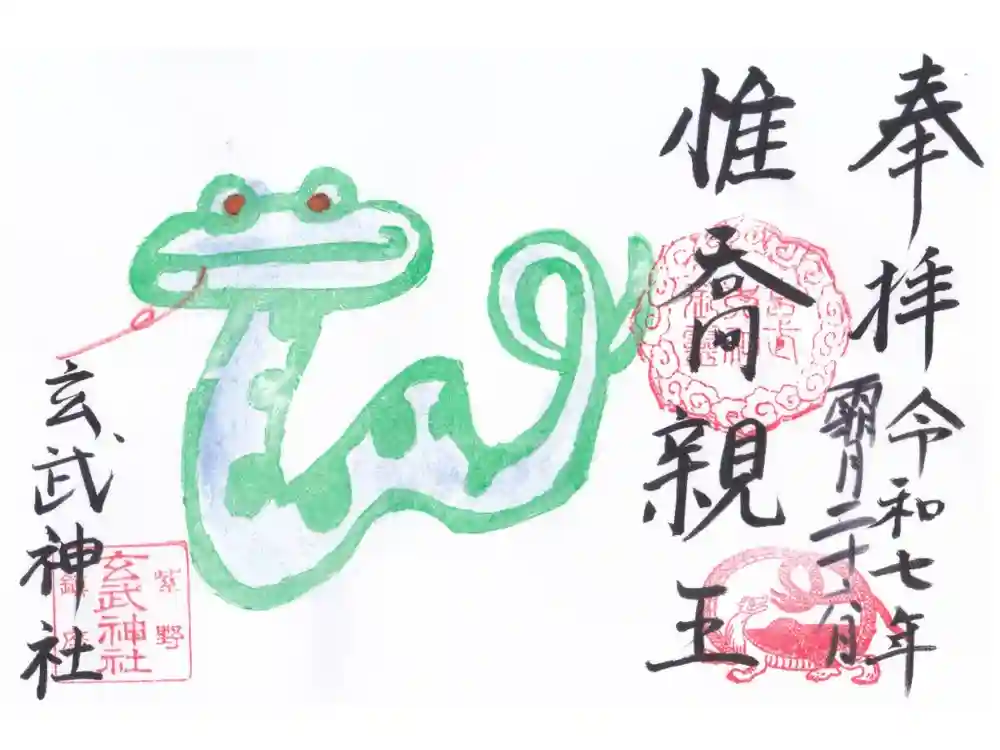 奉拝
令和七年
霜月二十
惟喬親王
玄武神社
紫野
玄武神社
鎮座